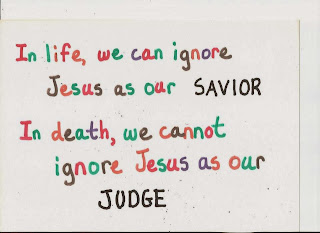 In life, we can ignore
Jesus as our SAVIOR
In death, we cannot
ignore Jesus as our
JUDGE